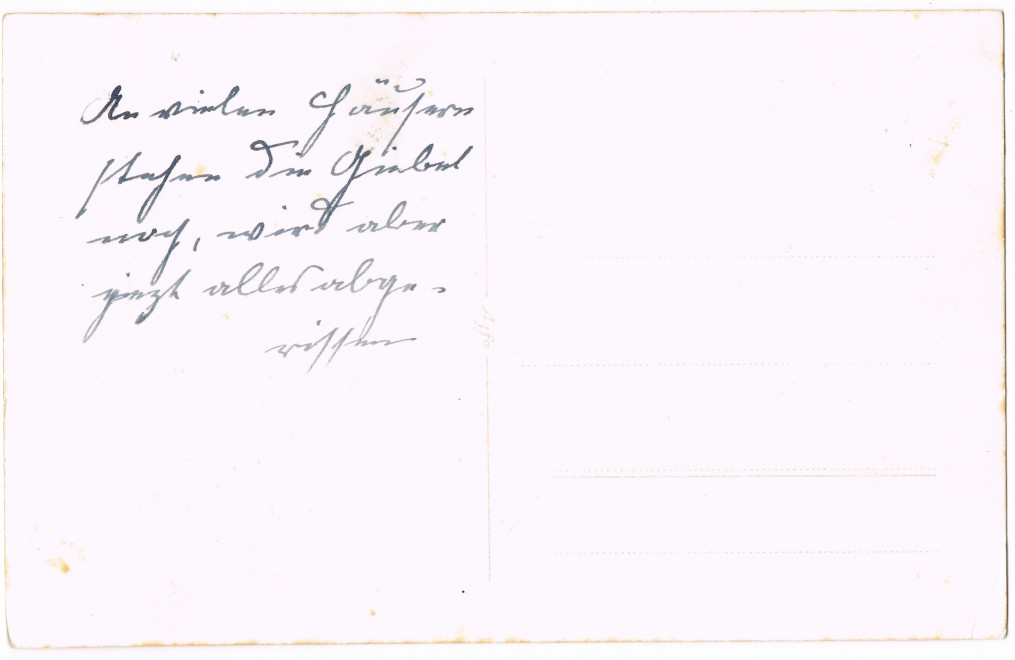 An vielen Häusern
stehen die Giebel
noch, wird aber
jezt alles abge-
rissen
Agfa